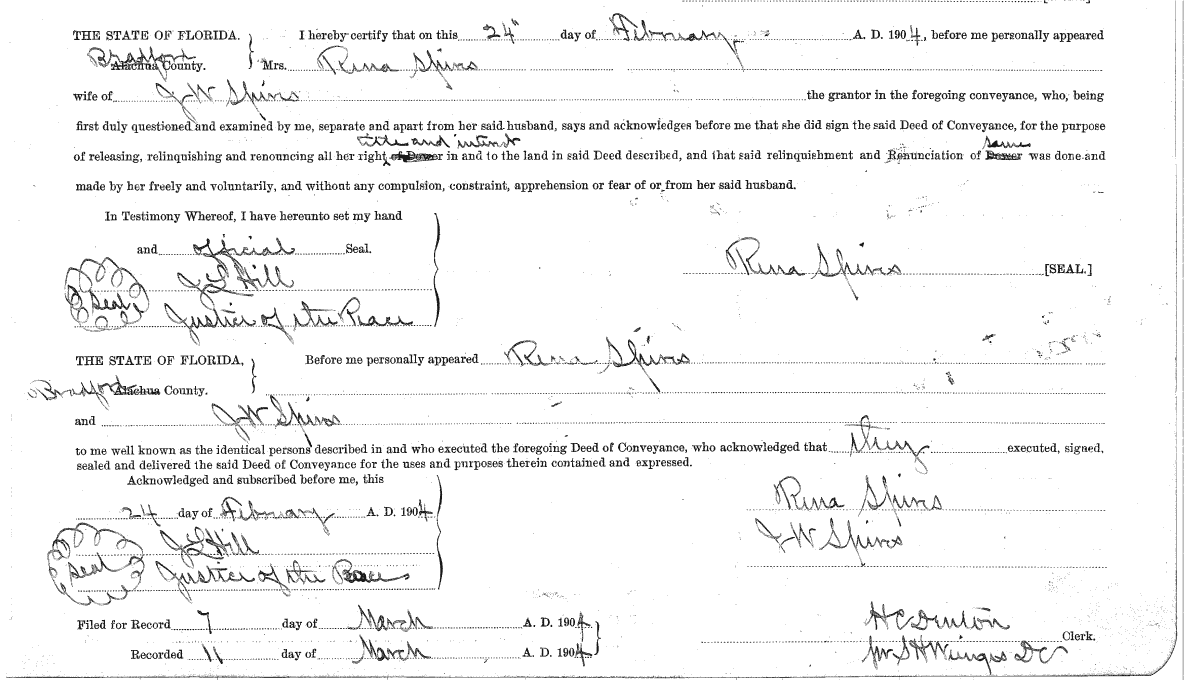 THE STATE OF FLORIDA. I hereby certify that on this 24" day of February A. D. 1904, before me personally appeared
Bradford Alachua County. Mrs. Rena Spires
wife of J W Spires the grantor in the foregoing conveyance, who, being
first duly questioned and examined by me, separate and apart from her said husband, says and acknowledges before me that she did sign the said Deed of Conveyance, for the purpose
title and interest same
of releasing, relinquishing and renouncing all her right of Dower in and to the land in said Deed described, and that said relinquishment and Renunciation of Dower was done and
made by her freely and voluntarily, and without any compulsion, constraint, apprehension or fear of or from her said husband.
In Testimony Whereof, I have hereunto set my hand
and official Seal.
Rena Spires [SEAL.]
J L Hill
Seal
Justice of the Peace
THE STATE OF FLORIDA, Before me personally appeared Rena Spires
Bradford Alachua County.
and J W Spires
to me well known as the identical persons described in and who executed the foregoing Deed of Conveyance, who acknowledged that they executed, signed,
sealed and delivered the said Deed of Conveyance for the uses and purposes therein contained and expressed.
Acknowledged and subscribed before me, this
24 day of February A. D. 1904
Rena Spires
J W Spires
J L Hill
Seal
Justice of the Peace
Filed for Record 7 day of March A. D. 1904
H C Denton Clerk.
Recorded 11 day of March A. D. 1904
per S H Wienges D C